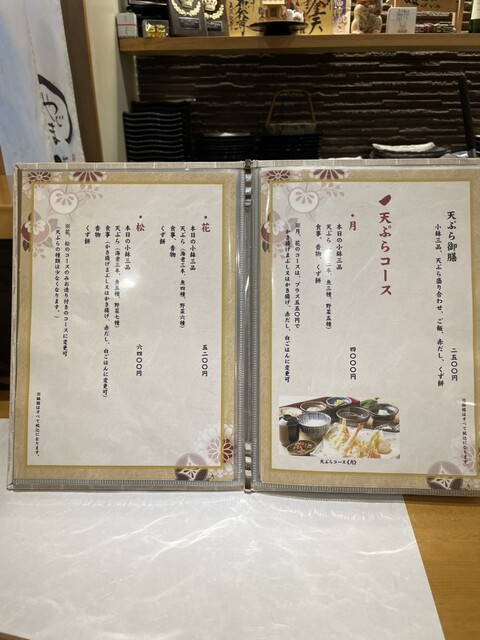 天ぷら御膳
小鉢三品、天ぷら盛り合わせ、ご飯、赤だし、くず餅
二五〇〇円
天ぷらコース
・月
本日の小鉢三品
天ぷら（海老二本、魚三種、野菜五種）
食事、香物、くず餅
四〇〇〇円
※月、花のコースは、プラス五五〇円で
かき揚げまぶし又はかき揚げ、赤だし、白ごはんに変更可
天ぷらコース《月》
※価格はすべて税込になります。
・花
本日の小鉢三品
天ぷら（海老二本、魚四種、野菜六種）
食事、香物
くず餅
五二〇〇円
・松
本日の小鉢三品
天ぷら（海老三本、魚五種、野菜七種）
食事（かき揚げまぶし又はかき揚げ、赤だし、白ごはんに変更可）
香物
くず餅
六四〇〇円
※花、松のコースのみお造り付きのコースに変更可
（天ぷらの種類は少なくなります。）
※価格はすべて税込になります。